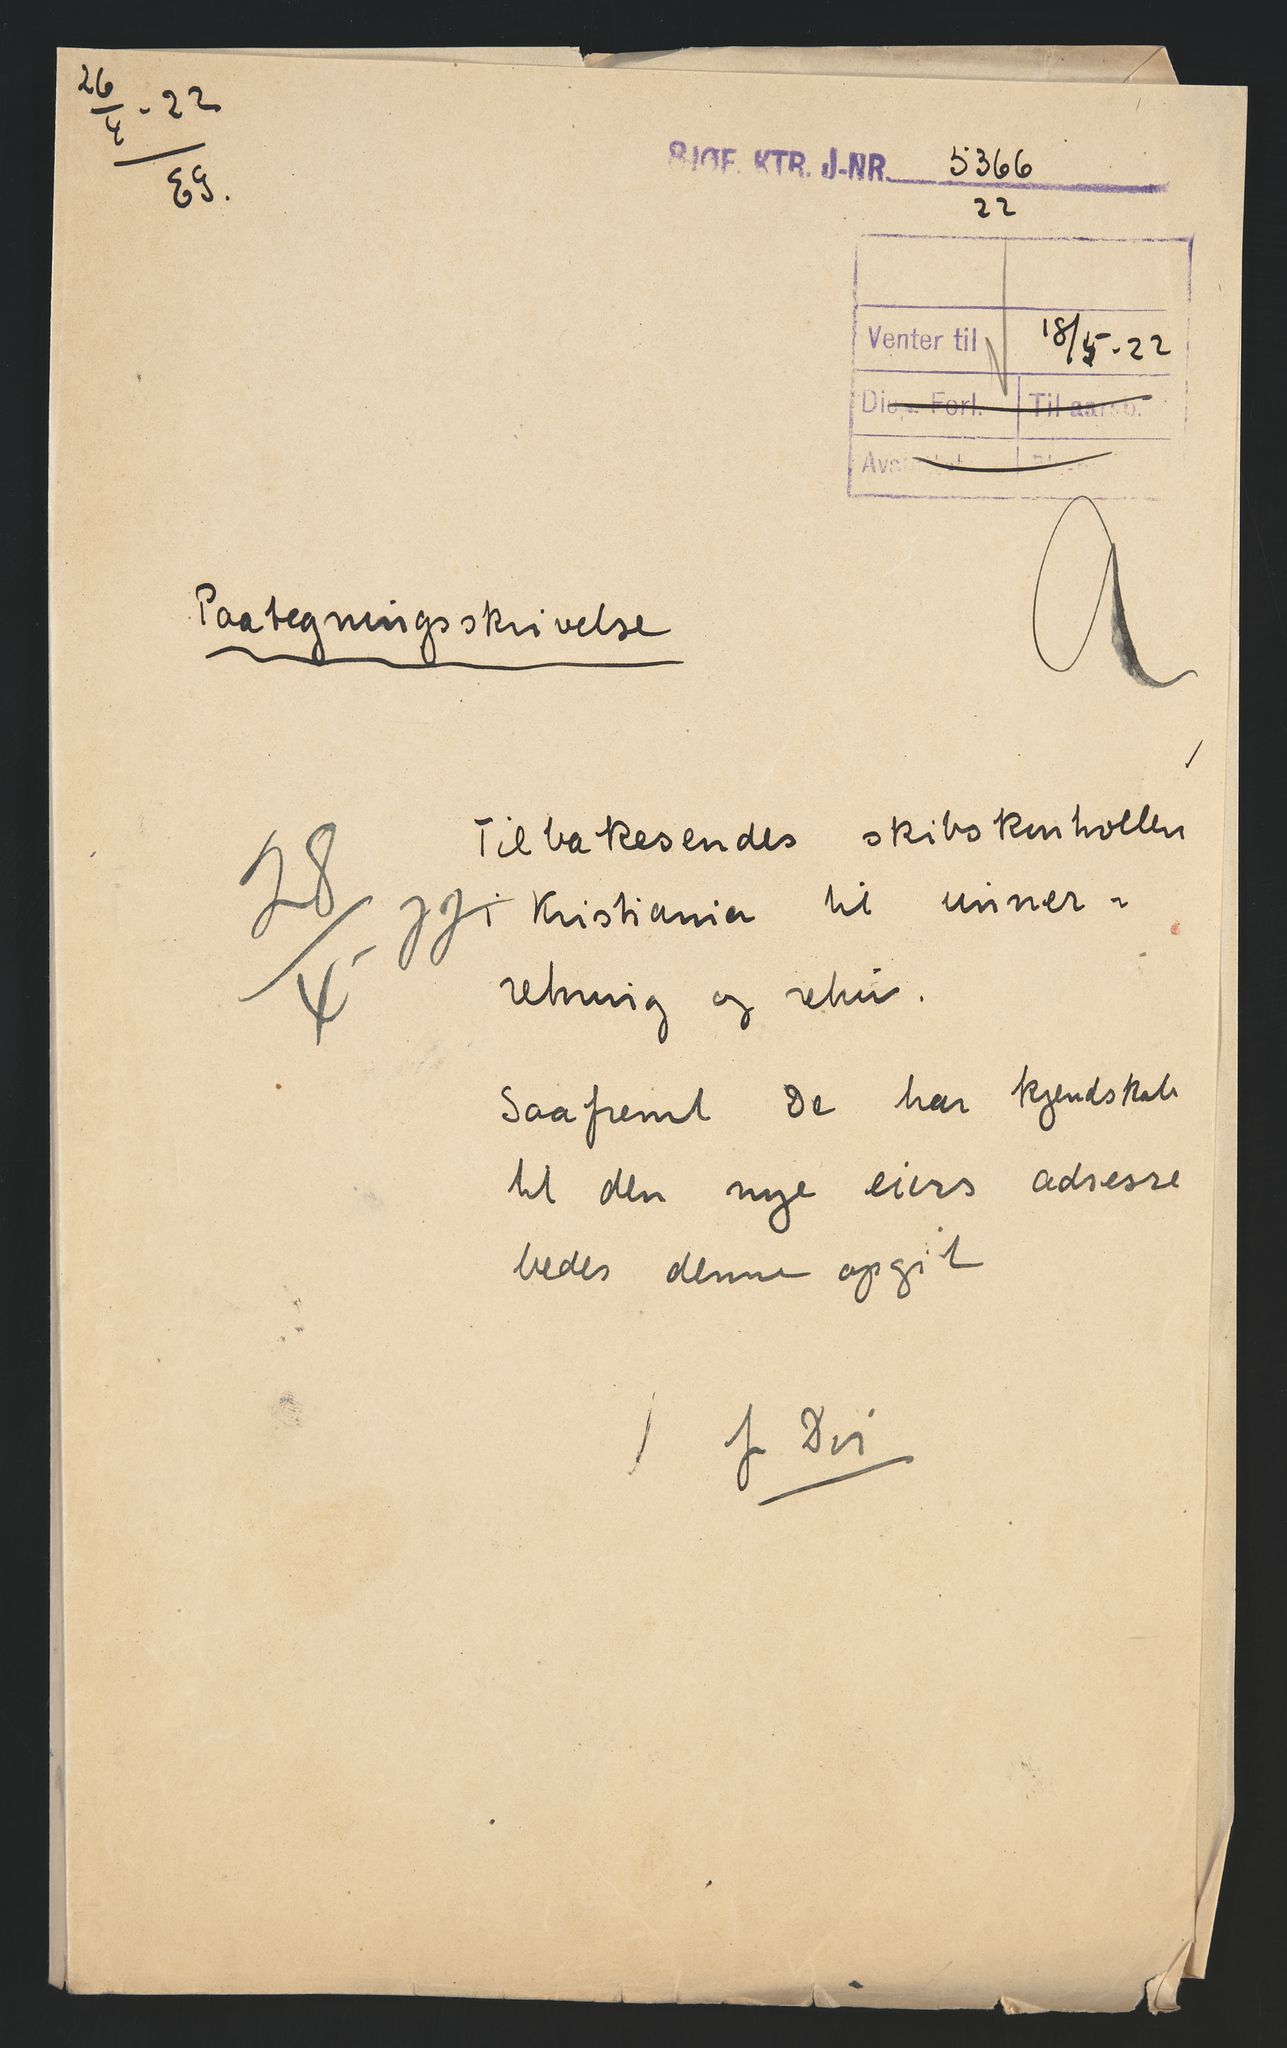 26/4 - 22
EG.
SJØF. KTR. J-NR. 5366
22
Venter til 18/5-22
Disp. Forl. Til aarsb.
Paategningsskrivelse
Tilbakesendes skibskontrollen
28/4 i Kristiania til under-
retning og retur.
Saafremt De har kjendskab
til den nye eiers adresse
bedes denne opgit
f Dir